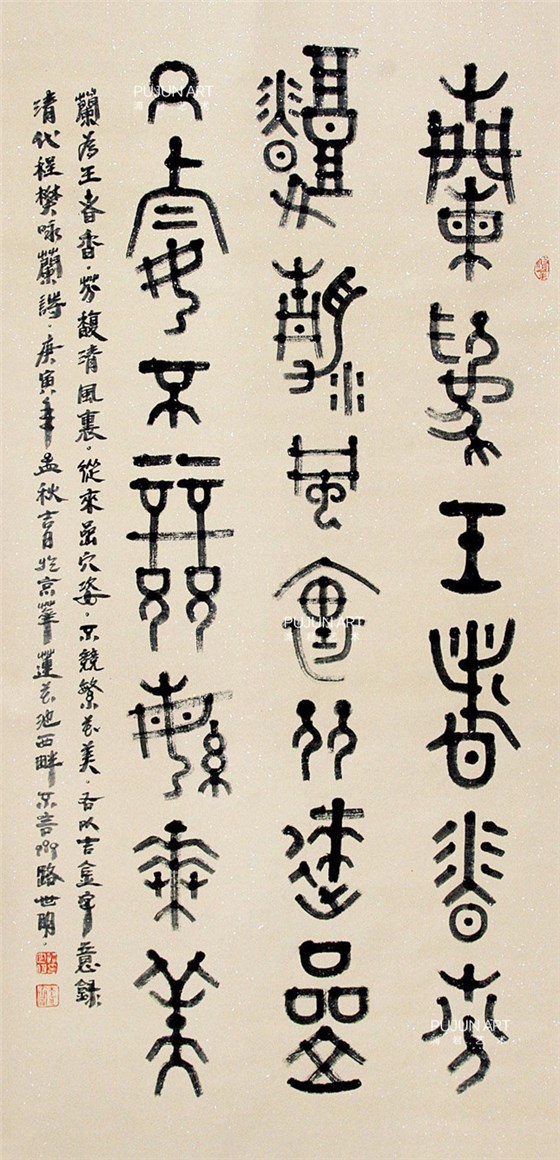 蘭為王者香芬
馥清風裏從來嵒
穴姿不競繁華美
蘭為王者香。芬馥清風裏。從來嵒穴姿。不競繁花美。吾以吉金字意錄
清代程樊咏蘭詩。庚寅年孟秋吉日於京華蓮花池西畔路世明。
PUJUN ART
PUJUN ART
PUJUN ART